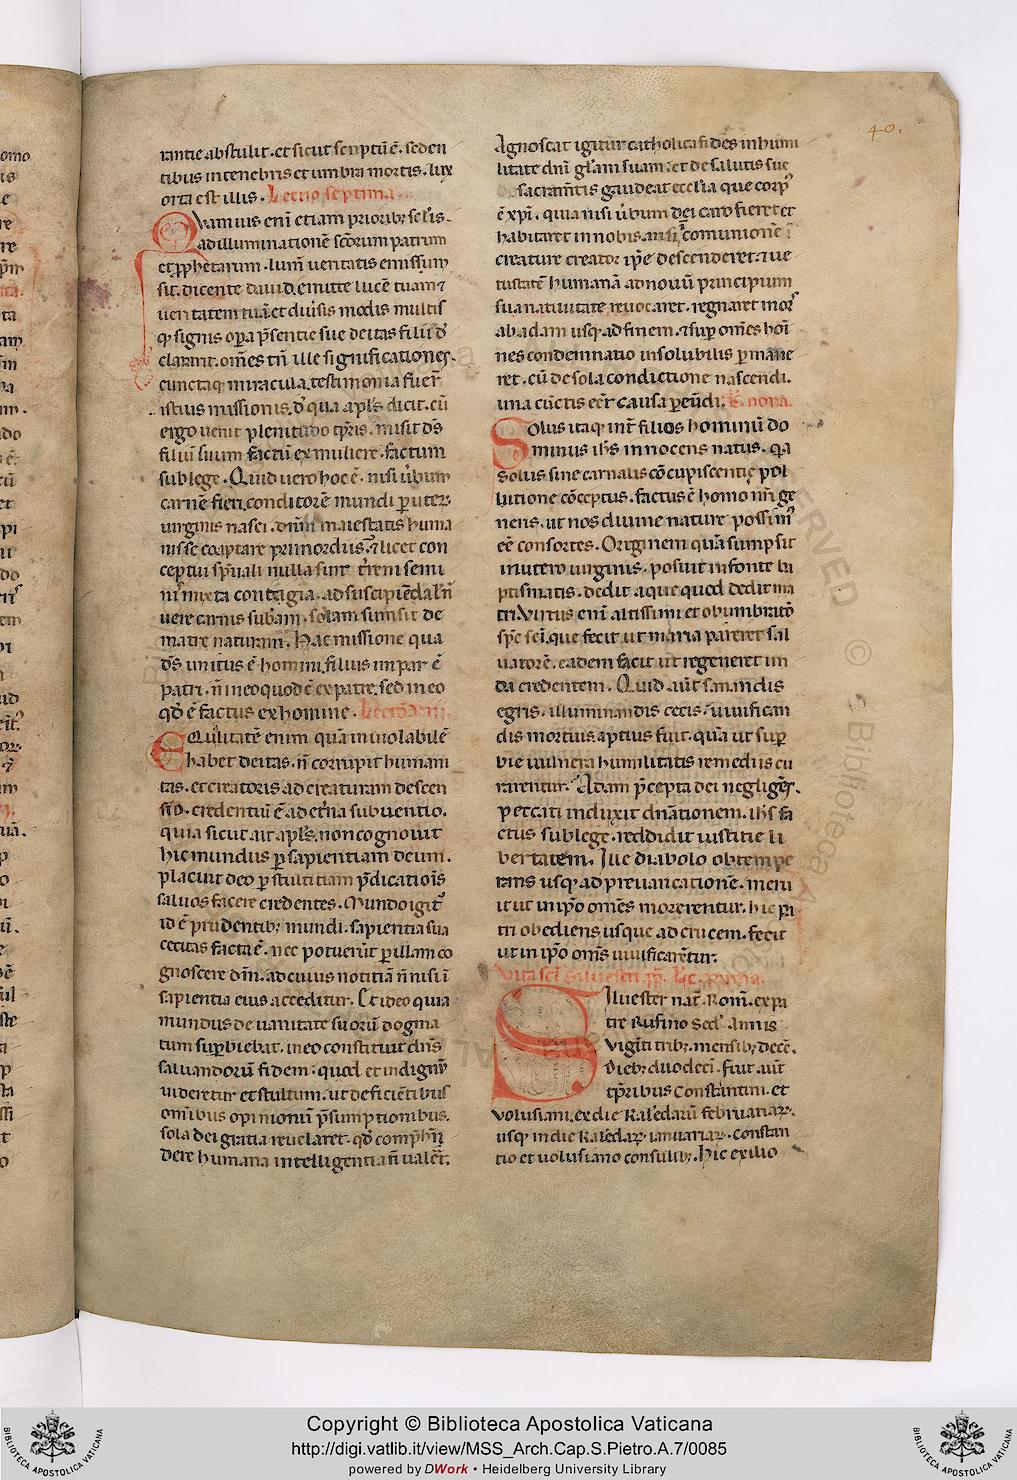 40.
rantie abstulit. et sicut scriptū ē. seden
tibus in tenebris et umbra mortis. lux
orta est illis. Lectio septima
Quamuis enī etiam priorib; sc̄lis.
ad illuminationē sc̄orum patrum
et pphetarum. lum̄ ueritatis emissum
sit. dicente dauid. emitte lucē tuam ⁊
ueritatem tuā. et diūsis modis multisꝗ
signis oꝑa p̄sentie sue deitas filii d̓
clararit. om̄es tn̄ ille significationes.
cunctaꝗ miracula. testimonia fuer̄
istius missionis. d̓ qua apl̄s dicit. cū
ergo uenit plenitudo tp̄ris. misit d̄s
filiū suum factū ex muliere. factum
sub lege. Quid uero hoc ē. nisi ūbum
carnē fieri. conditorē mundi ꝑ uter
uirginis nasci. dn̄m maiestatis huma
nis se coaptare primordiis. ⁊ licet con
ceptui sp̄uali nulla sint t̄reni semi
nis mixta contagia. ad suscipiēda tn̄
uere carnis sub̄am. solam sumsit de
matre naturam. Hac missione qua
d̄s unitus ē homini. filius impar ē
patri. n̄ in eo quod ē ex patre. sed in eo
qd̓ ē factus ex homine. Lectō .viij.
Equalitatē enim quā inuiolabilē
habet deitas. n̄ corrupit humani
tas. et creatoris ad creaturam descen
sio. credentiū ē ad et̄na subuentio.
quia sicut ait apl̄s. non cognouit
hic mundus ꝑ sapientiam deum.
placuit deo ꝑ stultitiam p̄dicatiōis
saluos facere credentes. Mundo igit᷑
id ē prudentib; mundi. sapientia sua
cecitas facta ē. nec potuerūt ꝑ illam co
gnoscere dm̄. ad cuius notitiā n̄ nisi ī
sapientia eius acceditur. Et ideo quia
mundus de uanitate suorū dogma
tum suꝑbiebat. in eo constituit dn̄s
saluandorū fidem: quod et indignū
uideretur et stultum. ut deficiētibus
omībus opinionū p̄sumptionibus.
sola dei gratia reuelaret. qd̓ comp̄hē
dere humana intelligentia n̄ ualēt.
Agnoscat igitur catholica fides in humi
litate dn̄i gl̄am suam: et de salutis sue
sacram̄tis gaudeat ecclīa que corp᷒
ē xp̄i. quia nisi ūbum dei caro fieret et
habitaret in nobis. nisi ī comunionē
creature creator ip̄e descenderet. ⁊ ue
tustatē humanā ad nouū principium
sua natiuitate reuocaret. regnaret mors
ab adam usꝗ ad finem. ⁊ suꝑ om̄es homī
nes condemnatio insolubilis ꝑmane
ret. cū de sola condictione nascendi.
una cūctis eēt causa ꝑeūdi. L. nona
Solus itaꝗ int̄ filios hominū do
minus ih̄s innocens natus. qa
solus sine carnalis cōcupiscentię pol
lutione cōceptus. factus ē homo nr̄i ge
neris. ut nos diuine nature possim᷒
eē consortes. Originem quā sumpsit
in utero uirginis. posuit in fonte ba
ptismatis. dedit aque quod dedit ma
tri. Virtus enī altissimi et obumbratō
sp̄c sc̄i. que fecit ut maria pareret sal
uatorē. eadem facit ut regeneret un
da credentem. Quid aūt sanandis
egris. illuminandis cecis. uiuifican
dis mortuis aptius fuit. quā ut suꝑ
bie uulnera humilitatis remediis cu
rarentur. Adam p̄cepta dei negligēs.
peccati induxit dn̄ationem. ih̄s fa
ctus sub lege. reddidit iustitie li
bertatem. Ille diabolo obtempe
rans usꝗ ad preuaricationē. meru
it ut in ip̄o om̄es morerentur. hic pa
tri obediens usque ad crucem. fecit
ut in ip̄o om̄s uiuificarētur.
Vita sc̄i Siluestri pp̄. Lc̄. prima.
Siluester nat᷒. Rom̄. ex pa
tre Rufino. Sed᷑. annis
uigīti trib;. mensib; decē.
dieb; duodecī. fuit aūt
tp̄ribus Constantini. et
uolusiani. ex die Kalēdarū februariaꝝ.
usꝗ in die Kalēdaꝝ ianuariaꝝ. Constan
tio et uolusiano consulib;. Hic exilio
Copyright © Biblioteca Apostolica Vaticana
http://digi.vatlib.it/view/MSS_Arch.Cap.S.Pietro.A.7/0085
powered by DWork • Heidelberg University Library
BIBLIOTECA APOSTOLICA VATICANA
BIBLIOTECA APOSTOLICA VATICANA